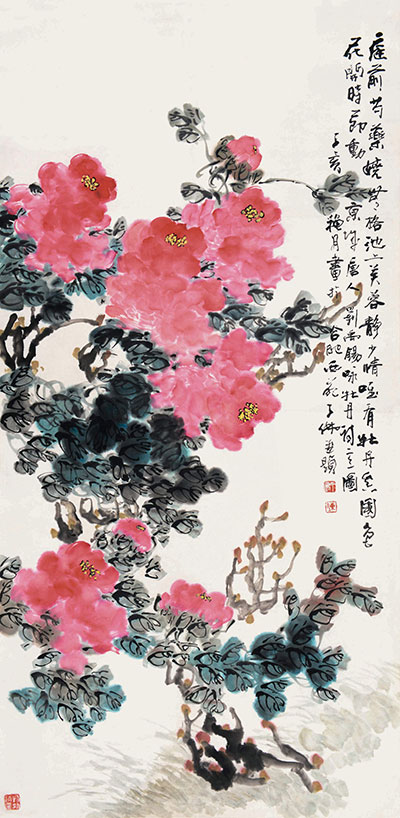 庭前芍藥妖無格池上芙蓉靜少情唯有牡丹真國色
花開時節動京城唐人劉禹錫咏牡丹詩意圖
亥 月畫於合肥 子 並題